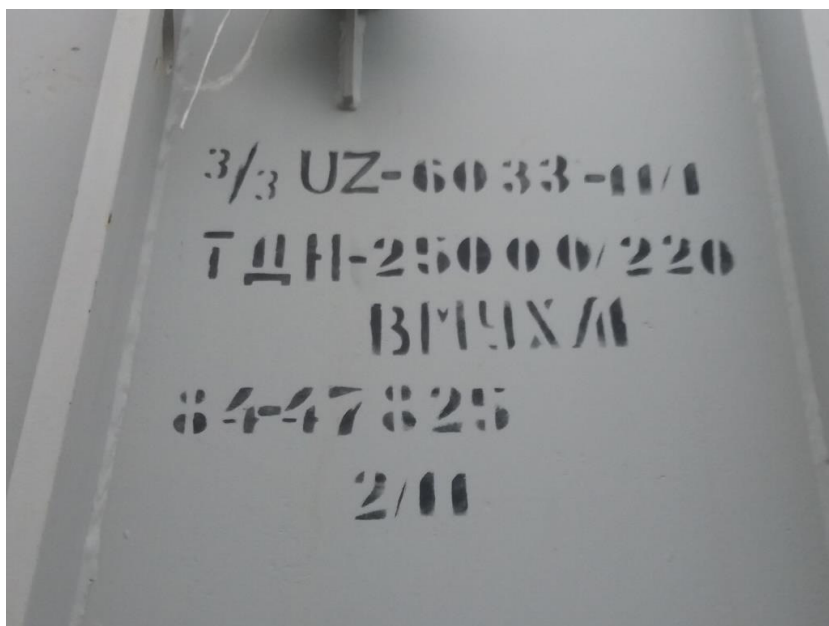 3/3 UZ-6033-11/1
ТДН-25000/220
ВМУХЛ
8447825
2/11